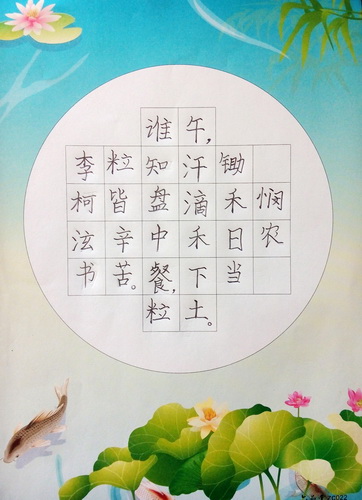 悯农
锄禾日当
午，汗滴禾下土。
谁知盘中餐，粒
粒皆辛苦。
李柯泫书